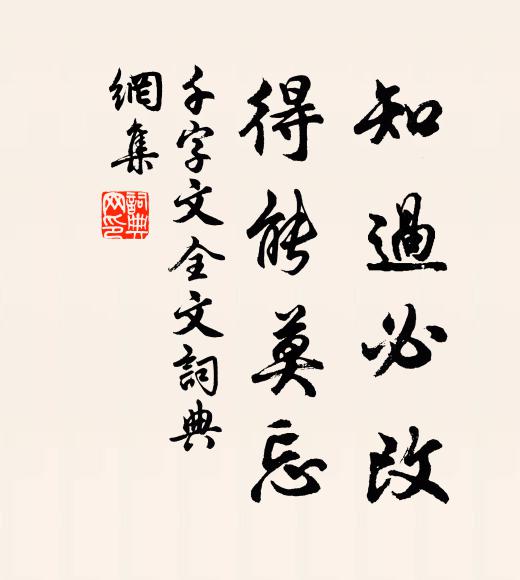 知過必改
得能莫忘
千字文全文詞典
網集
詞典
网印